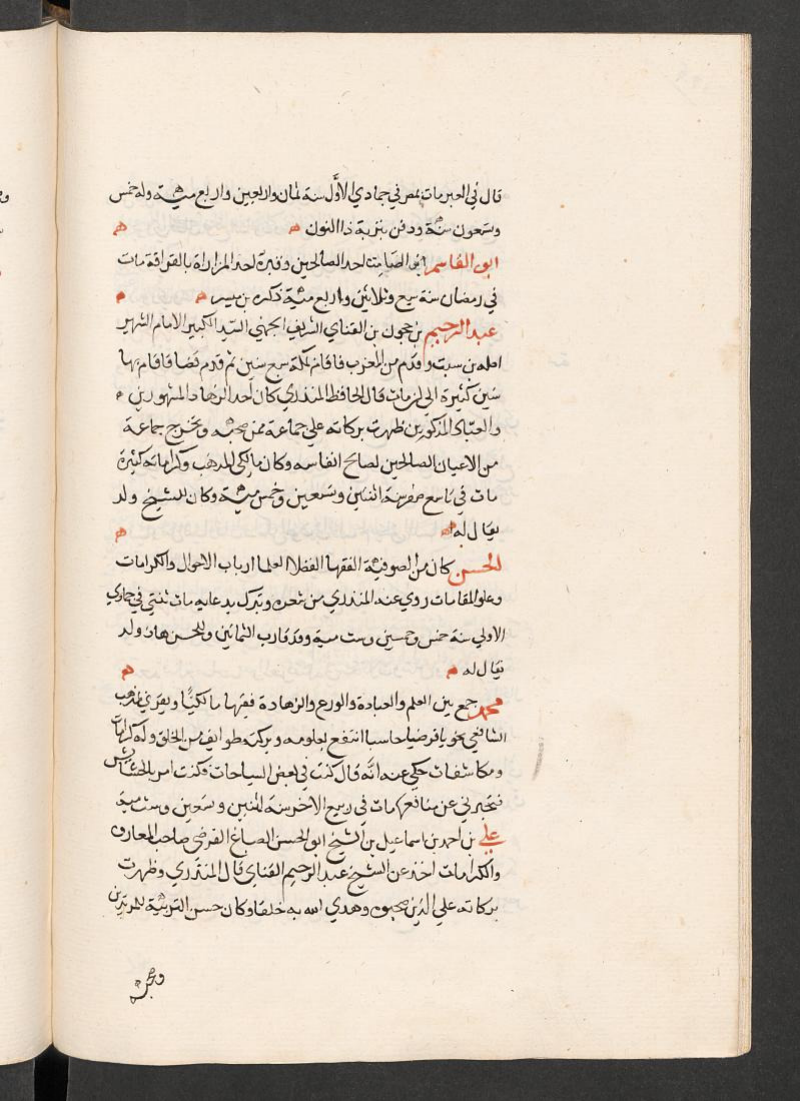 قال في العبر مات بمصر في جمادي الاوَّل سنة ثمان واربعين واربع مئة وله خمس
وتسعون سنة ودفن بتربة ذا النون ه ه
ابو القاسم ابو الصامت احد الصالحين وقبره احد المزاراة بالقرافة مات
في رمضان سنة سبع وثلاثين واربع مئة ذكره بن ميسر ه ه
عبد الرحيم بن حجون بن القناي الشريف الجهني السيد الكبير الامام الشهير
اصله من سبت وقدم من المغرب فاقام بمكة سبع سنين ثم قدم قنا فاقام بها
سنين كثيرة الي ان مات قال الحافظ المنذري كان احد الزهاد المشهورين ه
والعباد المذكورين ظهرت بركاته علي جماعة ممن صحبه وتخرج جماعة
من الاعيان الصالحين لصالح انفاسه وكان مالكي المذهب وكراماته كثيرة
مات في تاسع صفر سنة اثنين وتسعين وخمس مئة وكان للشيخ ولد
يقال له ه ه
الحسن كان من الصوفية الفقها الفضلا العلما ارباب الاحوال والكرامات
وعلو المقامات روي عنه المنذري من شعره وتبرك بدعايه مات بقني في جمادي
الاولي سنة خمس وخمسين وست مية وقد قارب الثمانين وللحسن هاذ ولد
يقال له ه ه
محمد جمع بين العلم والعبادة والورع والزهادة فقيها مالكيًا ويقري مذهب
الشافعي نحويا فرضيا حاسبا انتفع بعلومه وبركته طوايف من الخلق وله كرامات
ومكاشفات حكي عنه انَّه قال كنت في بعض السياحات فكنت امر بالحشايش
فتخبرني عن منافعها مات في ربيع الاخر سنة اثنين وتسعين وست مية
علي بن احمد بن اسماعيل بن الشيخ ابو الحسن الصباغ القوصي صاحب المعارف
والكرامات اخذ عن الشيخ عبد الرحيم القناي قال المنذري وظهرت
بركاته علي الذين صحبوه وهدي الله به خلقا وكان حسن التربية للمريدين